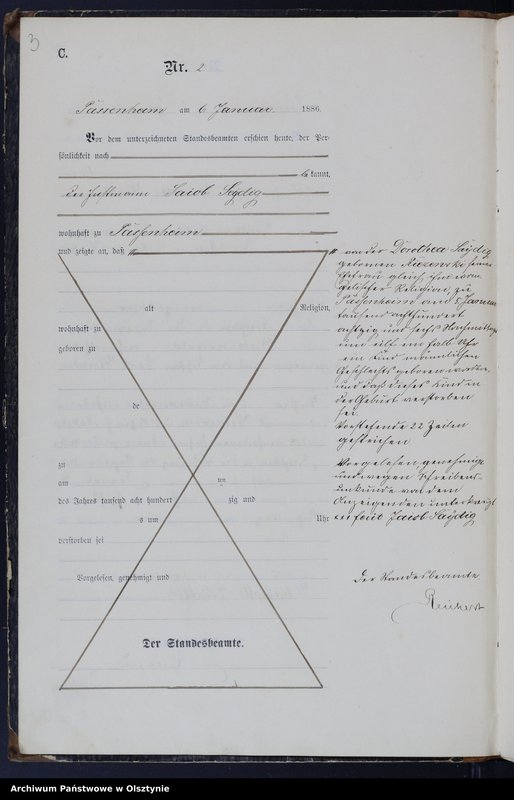 3
C.
Nr. 2
Passenheim am 6 Januar 1886.
Vor dem unterzeichneten Standesbeamten erschien heute, der Per-
sönlichkeit nach
kannt,
der Jacob
wohnhaft zu Passenheim
und zeigte an, daß
von der Dorothea Saydig
gebornen seiner
Ehefrau gleich ihm evan-
gelischer Religion, zu
Passenheim am 5 Januar
tausend achthundert
achtzig und sechs Nachmittags
um eilf ein halb Uhr
ein Kind männlichen
Geschlechts geboren worden
und daß dieses Kind in
der Geburt verstorben
sei.
Vorstehende 22 Zeilen
gestrichen
Vorgelesen, genehmigt
und wegen Schreibens-
unkunde von dem
Anzeigenden unterkreuzt
Jacob Saydig
Der Standesbeamte
alt Religion,
wohnhaft zu
geboren zu
de
zu
am ten
des Jahres tausend acht hundert zig und
s um Uhr
verstorben sei
Vorgelesen, genehmigt und
Der Standesbeamte.
Archiwum Państwowe w Olsztynie